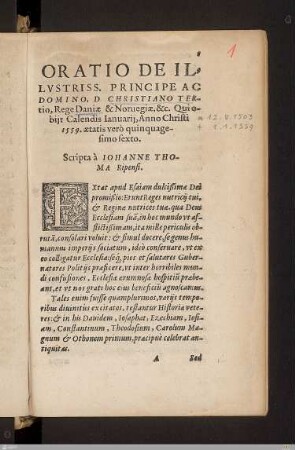 ORATIO DE IL
LVSTRISS. PRINCIPE AC
DOMINO, D CHRISTIANO TER-
tio, Rege Daniæ & Noruegiæ, &c. Qui o-
bijt Calendis Ianuarij, Anno Christi
1559. ætatis verò quinquage-
simo sexto.
Scripta à IOHANNE THO-
MA Ripensi.
EXtat apud Esaiam dulcissima Dei
promissio: Erunt Reges nutricij tui,
& Reginæ nutrices tuæ, qua Deus
Ecclesiam suã, in hoc mundo vt af-
flictissimam, ita mille periculis ob-
rutã, consolari voluit: & simul docere, se genus hu-
manum imperijs sociatum, ideò conseruare, vt ex
eo colligatur Ecclesia: eiq́, pios et salutares Guber-
natores Politijs præficere, vt inter horribiles mun-
di confusiones, Ecclesiæ ærumnosæ hospitia præbe-
ant, et vt nos grati hoc eius beneficiũ agnoscamus.
Tales enim fuisse quamplurimos, varijs tempo-
ribus diuinitus excitatos, testantur Historiæ vete-
res: & in his Dauidem, Iosaphat, Ezechiam, Iosi-
am, Constantinum, Theodosium, Carolum Ma-
gnum & Othonem primum, præcipuè celebrat an-
tiquitas.
A Sed
* 12. 8. 1503
† 1. 1. 1559